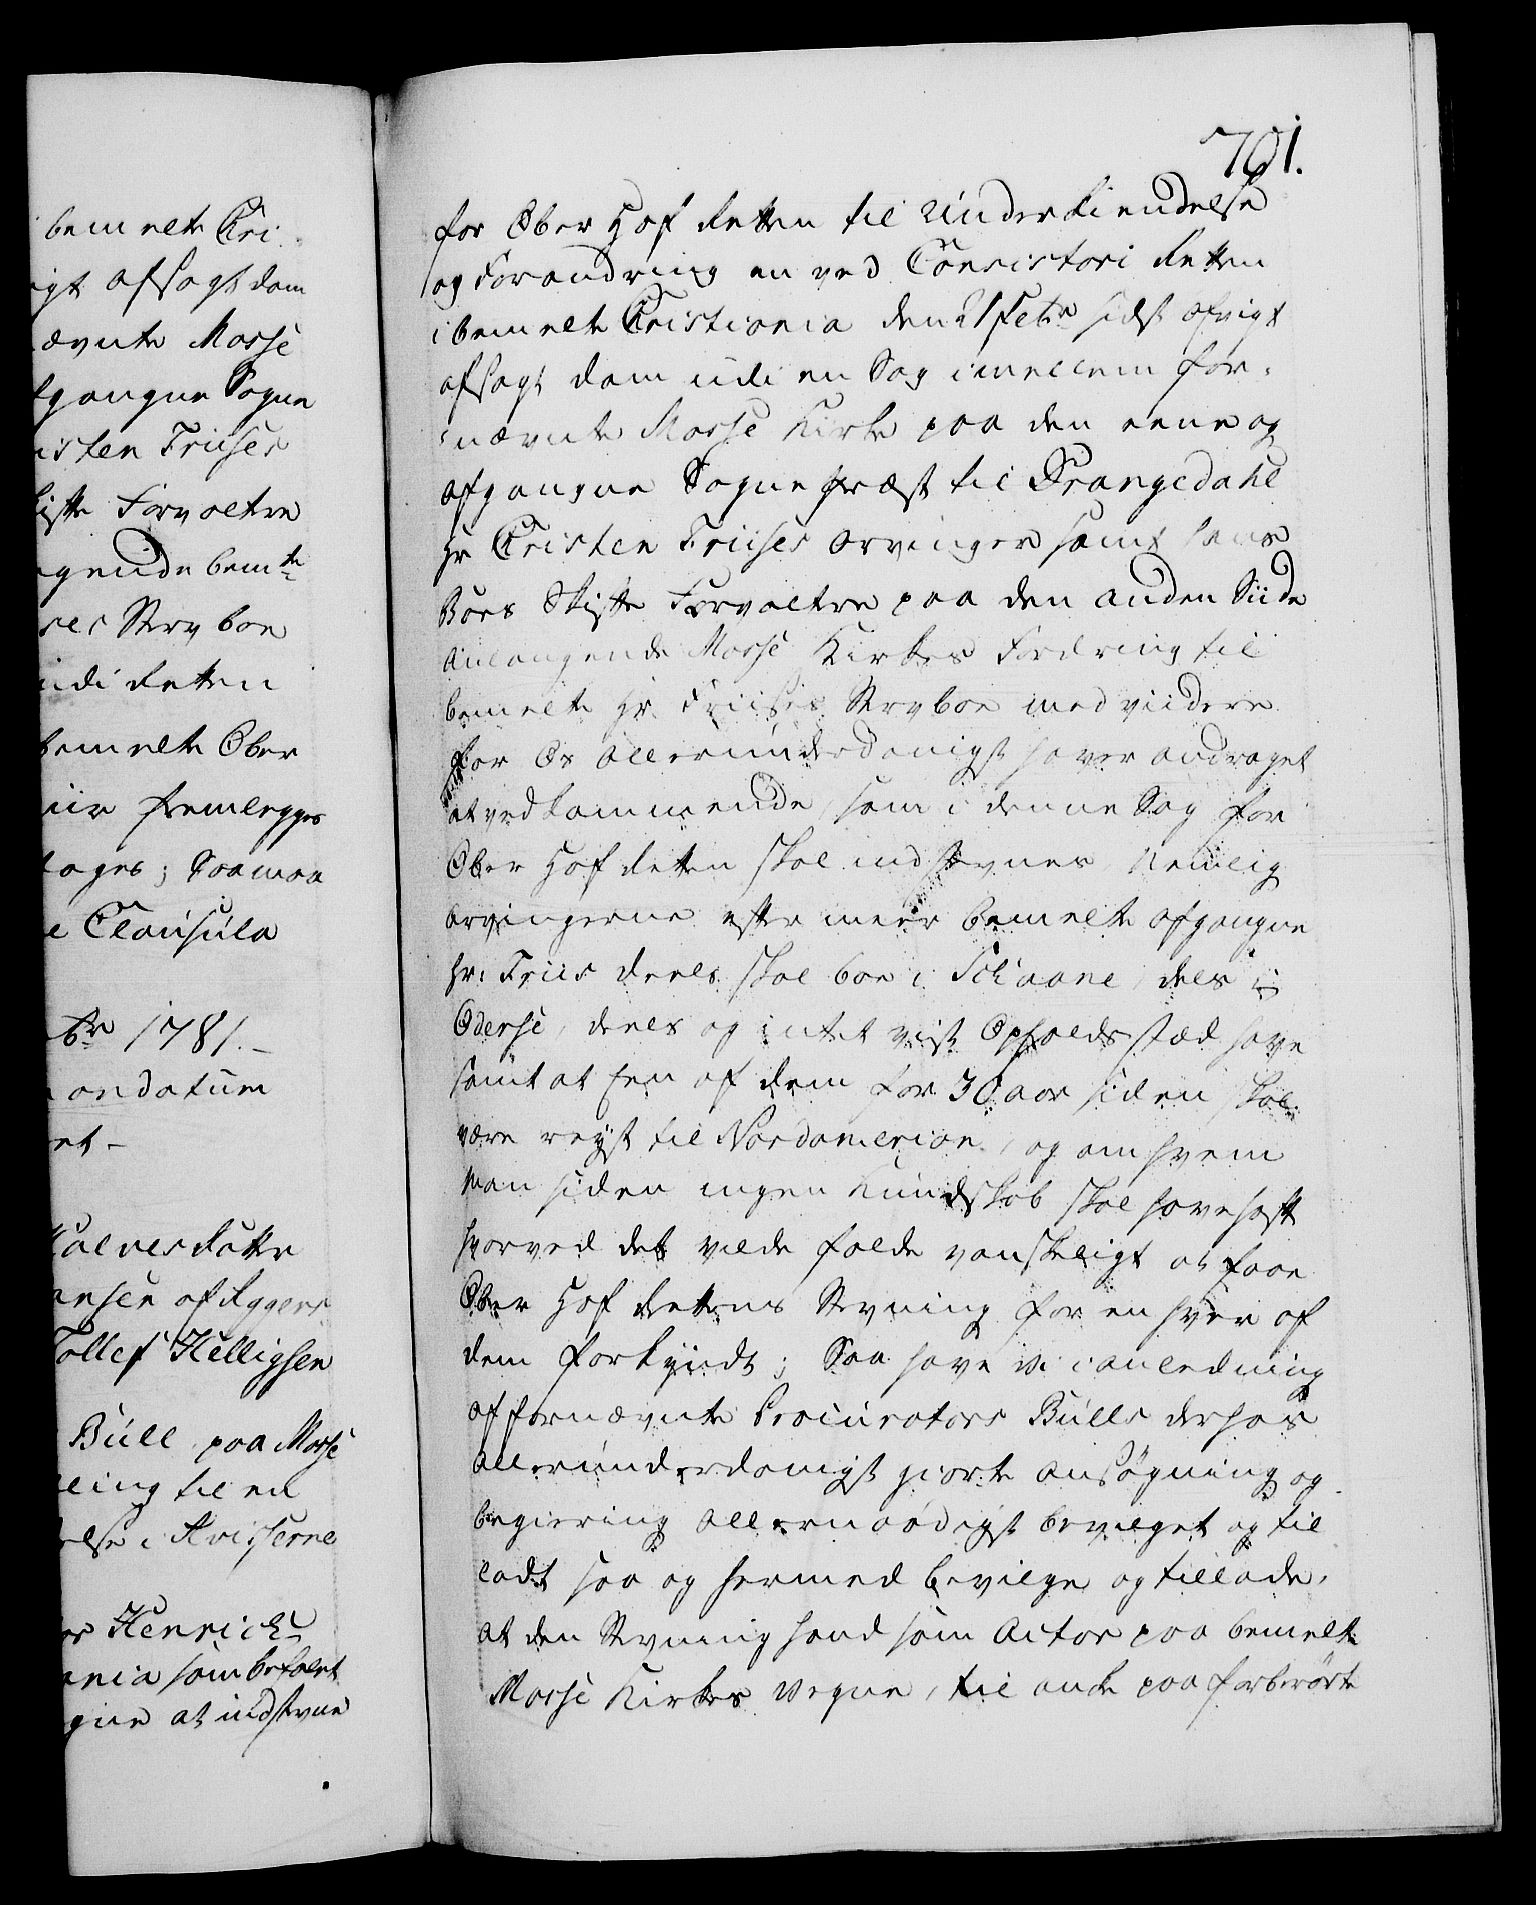 bemelte Cri
igt afsagt dom
ævnte Mosse
fgangne Sogne
isten Friises
ifte Forvaltre
gende bemte
ses Stervboe
udi Retten
bemelte Ober
iir fremlegges
tages; Saa maa
e Clausula
br 1781.
andatum
et
Halvesdatter
ansen af Aggers
Tollef Helligsen
Bull paa Mosse
ling til en
else i Aviserne
Henrich
ania som befalet
gne at indstevne
701.
for Ober Hof Retten til Underkiendelse
og Forandring en ved Consistori Retten
i bemelte Cristiania den 21 Febr sidst afvigt
afsagt Dom udi en Sag imellem for
nævnte Mosse Kirke paa den eene og
afgangne Sogne Præst til Drangedahl
Hr Cristen Friises Arvinger samt hans
Boes Skifte Forvaltre paa den anden Siide
anlangende Mosse Kirkes Fordring til
bemelte Hr. Friises Stervboe med viidere
for Os allerunderdanigst haver andraget
at vedkommende, som i denne Sag for
Ober Hof Retten skal indstevnes nemlig
Arvingerne efter meer bemelte afgangne
Hr. Friis deels skal boe i Schaane, deels i
Odense, deels og intet vist Opholds stæd have
samt at Een af dem for 30 aar siden skal
være reyst til Nordamerica, og om hvem
man siden ingen Kundskab skal have haft
hvorved det vilde falde vanskeligt at faae
Ober Hof Rettens Stevning for en hver af
dem forkyndt; Saa have Vi i anledning
af fornævnte Procurators Bulls derhos
allerunderdanigst giorte Ansøgning og
begiering allernaadigst bevilget og til
ladt saa og hermed bevilge og tillade,
at den Stevning hand som Actor paa bemelte
Mosse Kirkes Vegne, til anke paa forberørte